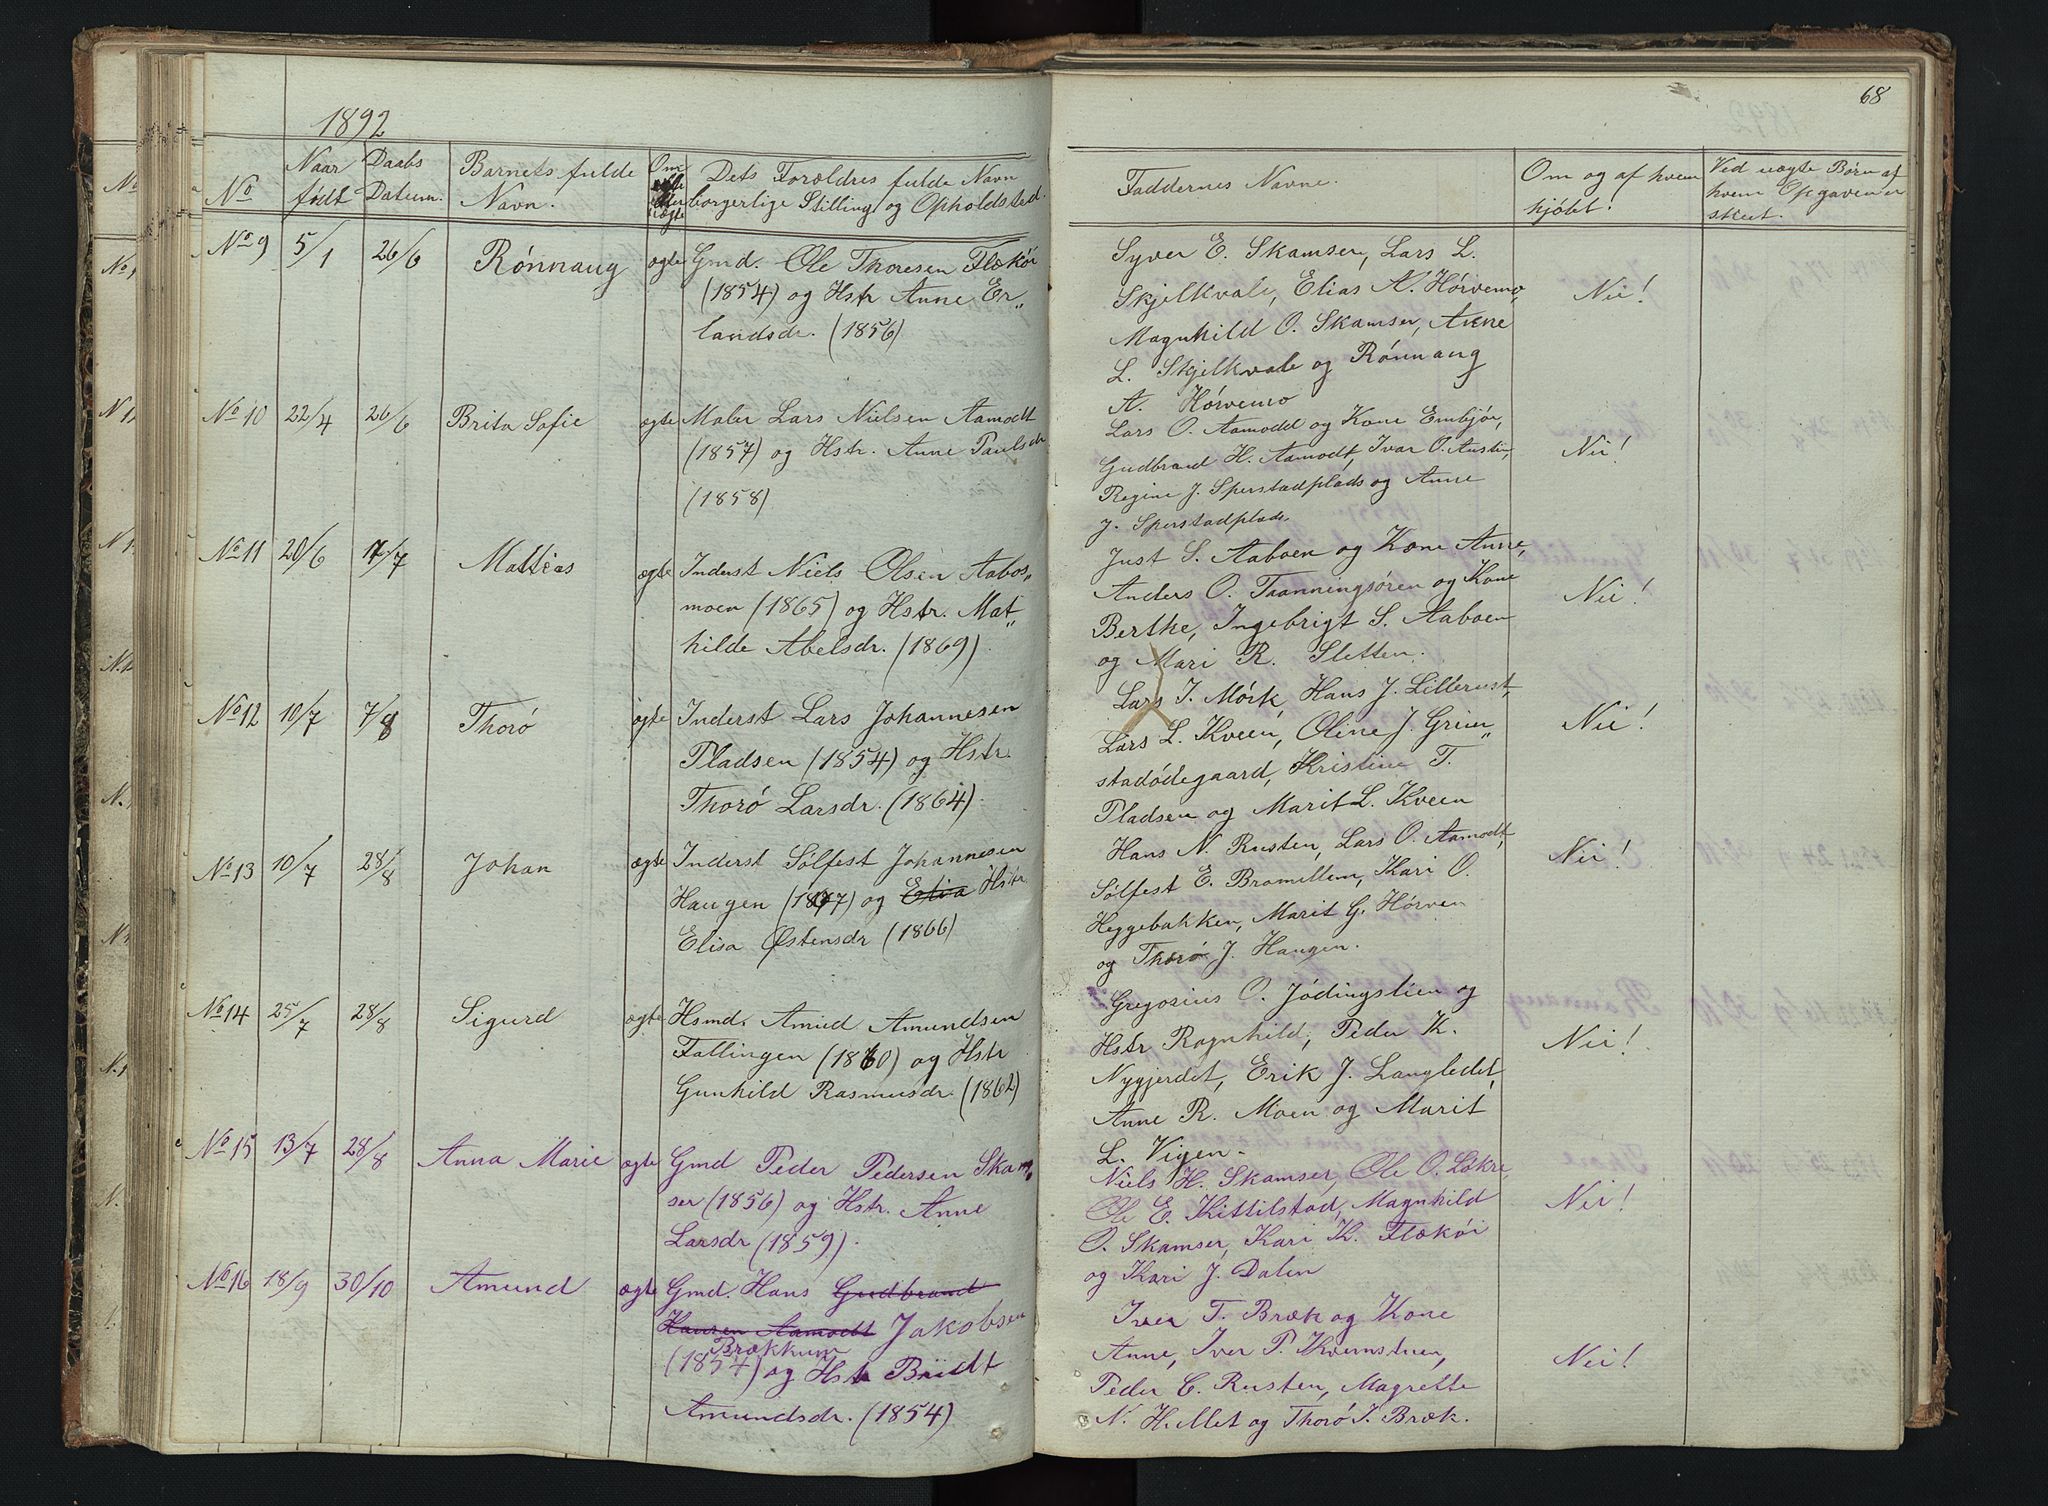 1892
No
Naar født
Daabs Datum.
Barnets fulde Navn.
Om ægte eller uægte
Dets Forældres fulde Navn borgerlige Stilling og Opholdsted.
No 9 5/1 26/6 Rónnaug ægte Gmd. Ole Thoresen Flækói
(1854) og Hstr Anne Er„
landsdr. (1856)
No 10 22/4 26/6 Brita Sofie ægte Maler Lars Nielsen Aamodt
(1857) og Hstr. Anne Paulsdr
(1858)
No 11 20/6 17/7 Mattias ægte Inderst Niels Olsen Aabos„
moen (1865) og Hstr. Mat„
hilde Abelsdr. (1869).
No 12 10/7 7/8 Thoró ægte Inderst Lars Johannesen
Pladsen (1854) og Hstr.
Thoró Larsdr. (1864).
No 13 10/7 28/8 Johan ægte Inderst Sólfest Johannesen
Haugen og Hstr
Elisa Østensdr (1866)
No 14 25/7 28/8 Sigurd ægte Hsmd. Amund Amundsen
Fallingen (1860) og Hstr
Gunhild Rasmusdr. (1862)
No 15 13/7 28/8 Anna Marie ægte Gmd Peder Pedersen Skam„
ser (1856) og Hstr. Anne
Larsdr (1859).
No 16 18/9 30/10 Amund ægte Gmd. Hans Gudbrand
Hansen Aamodt Jakobsen
Brækkum
(1854) og Hst Briidt
Amundsdr. (1854)
68
Faddernes Navne.
Om og af hvem hjóbt.
Ved uægte Børn af hvem Opgaven er skeet.
Syver E. Skamser, Lars L.
Skjelkvale, Elias A. Hórvemo,
Nei!
Magnhild O. Skamser, Anne
L. Skjelkvale og Rónnaug
A. Hórvemo
Lars O. Aamodd og Kone Embjór,
Gudbrand H. Aamodt, Ivar O. Austin,
Nei!
Regine J. Sperstadplads og Anne
J. Sperstadplads.
Just S. Aaboen og Kone Anne,
Anders O. Taanningsóren og Kone
Nei!
Berthe, Ingebrigt S. Aaboen
og Mari R. Sletten.
Lars I. Mórk, Hans J. Lillerust,
Lars L. Kveen, Oline J. Grim„
Nei!
stadódegaard, Kristine T.
Pladsen og Marit L. Kveen
Hans N. Rusten, Lars O. Aamodt,
Nei!
Sólfest E. Bramillem, Kari O.
Heggebakken, Marit G. Hórven
og Thoró J. Haugen.
Gregorius O. Jódingslien og
Hstr Ragnhild, Peder K.
Nei!
Nygjerdet, Erik J. Langledet,
Anne R. Moen og Marit
L. Vigen.
Niels H. Skamser, Ole O. Lókre,
Ole E. Kittilstad, Magnhild
Nei!
O. Skamser, Kari K. Flækói
og Kari J. Dalen
Iver T. Bræk og Kone
Anne, Iver P. Kvernstuen,
Nei!
Peder C. Rusten, Magrette
N. Hullet og Thoró I. Bræk.